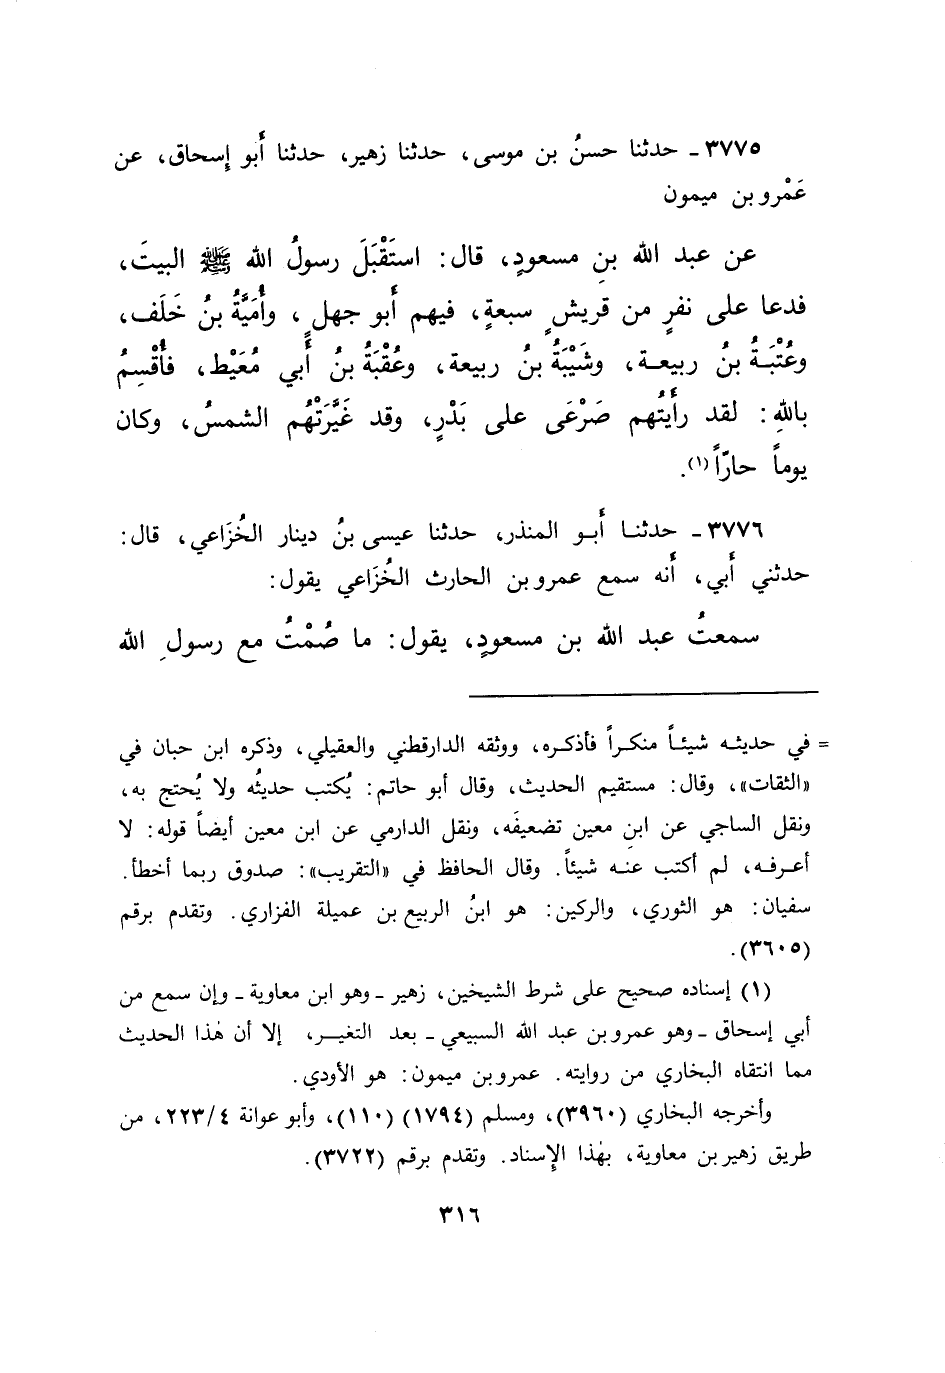 ٣٧٧٥ - حدثنا حسنُ بن موسى، حدثنا زهير، حدثنا أَبو إِسحاق، عن
عَمْرو بن ميمون
عن عبد الله بنِ مسعودٍ، قال: استَقْبَلَ رسولُ الله ﷺ البيتَ،
فدعا على نفرٍ من قريشٍ سبعةٍ، فيهم أَبو جهلٍ، وأُمَيَّةُ بنُ خَلَف،
وعُتْبَةُ بنُ ربيعة، وشَيْبَةُ بنُ ربيعة، وعُقْبَةُ بنُ أَبي مُعَيْط، فأُقْسِمُ
باللهِ: لقد رأَيتُهم صَرْعَى على بَدْرٍ، وقد غَيَّرَتْهُم الشمسُ، وكان
يوماً حارّاً(١).
٣٧٧٦ - حدثنا أَبو المنذر، حدثنا عيسى بنُ دينار الخُزَاعي، قال:
حدثني أَبي، أَنه سمع عمرو بن الحارث الخُزَاعي يقول:
سمعتُ عبد الله بن مسعودٍ، يقول: ما صُمْتُ مع رسولِ الله
= في حديثه شيئاً منكراً فأذكره، ووثقه الدارقطني والعقيلي، وذكره ابن حبان في
«الثقات»، وقال: مستقيم الحديث، وقال أبو حاتم: يُكتب حديثُه ولا يُحتج به،
ونقل الساجي عن ابنِ معين تضعيفَه، ونقل الدارمي عن ابن معين أيضاً قوله: لا
أعرفه، لم أكتب عنه شيئاً. وقال الحافظ في «التقريب»: صدوق ربما أخطأ.
سفيان: هو الثوري، والركين: هو ابنُ الربيع بن عميلة الفزاري. وتقدم برقم
(٣٦٠٥).
(١) إسناده صحيح على شرط الشيخين، زهير - وهو ابن معاوية - وإن سمع من
أبي إسحاق - وهو عمرو بن عبد الله السبيعي - بعد التغير، إلا أن هٰذا الحديث
مما انتقاه البخاري من روايته. عمرو بن ميمون: هو الأودي.
وأخرجه البخاري (٣٩٦٠)، ومسلم (١٧٩٤) (١١٠)، وأبو عوانة ٢٢٣/٤، من
طريق زهير بن معاوية، بهٰذا الإسناد. وتقدم برقم (٣٧٢٢).
٣١٦